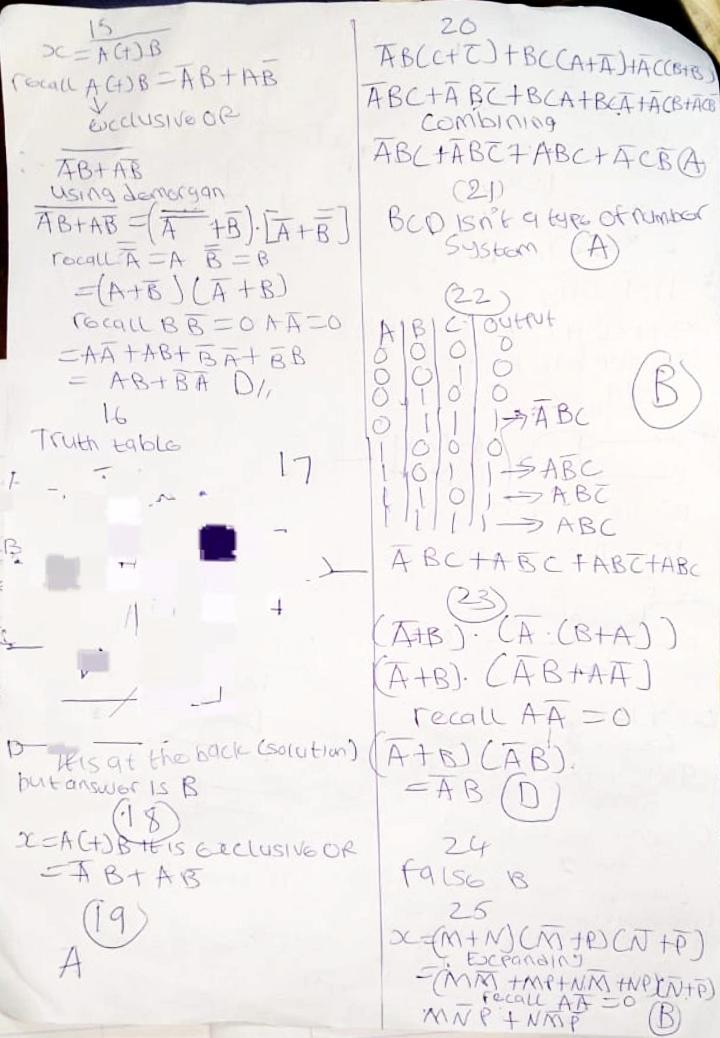 15
x = A̅(̅+̅)̅B̅
recall A(+)B = A̅B + AB̅
↓
exclusive OR
A̅B + AB̅
using demorgan
A̅B + AB̅ = (A̿ + B̅) . [A̅ + B̿]
recall A̿ = A B̿ = B
= (A + B̅)(A̅ + B)
recall B B̅ = 0 A A̅ = 0
= AA̅ + AB + B̅A̅ + B̅B
= AB + B̅A̅ D//
16
Truth table
17
B
D
It is at the back (solution)
but answer is B
18
x = A(+)B it is exclusive OR
= A̅B + AB̅
19
A
20
A̅B(C + C̅) + BC(A + A̅) + A̅C(B + B̅)
A̅BC + A̅BC̅ + BCA + BCA̅ + A̅CB + A̅CB̅
Combining
A̅BC + A̅BC̅ + ABC + A̅CB̅ A
(21)
BCD isn't a type of number
System A
22
A B C output
0 0 0 0
0 0 1 0
0 1 0 0
0 1 1 1 → A̅BC
1 0 0 0
1 0 1 1 → AB̅C
1 1 0 1 → ABC̅
1 1 1 1 → ABC
B
A̅BC + AB̅C + ABC̅ + ABC
23
(A̅ + B) . (A̅ . (B + A))
(A̅ + B) . (A̅B + AA̅]
recall AA̅ = 0
(A̅ + B)(A̅B).
= A̅B D
24
False B
25
x = (M + N)(M̅ + P)(N̅ + P̅)
Expanding
= (MM̅ + MP + NM̅ + NP)(N̅ + P̅)
recall AA̅ = 0
MN̅P + NM̅P̅ B